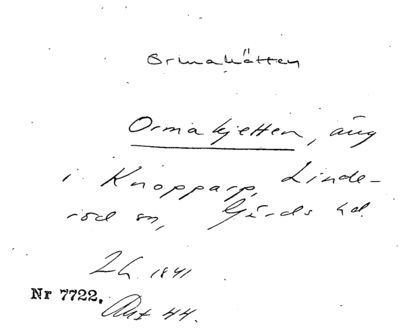 Ormakätten
Ormakjetten, äng
i Knopparp, Linde-
röd sn, Gärds hd.
Lh. 1841
Nr 7722. Akt 44.